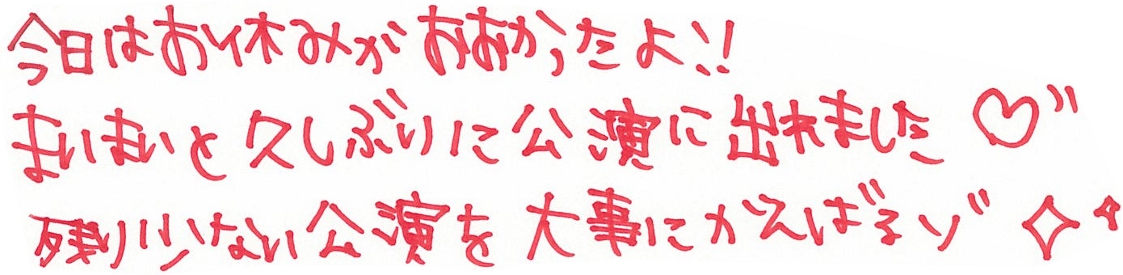 今日はお休みがおおかったよ!!
まいまいと久しぶりに公演に出れました♡"
残り少ない公演を大事にがんばるゾ✧✧